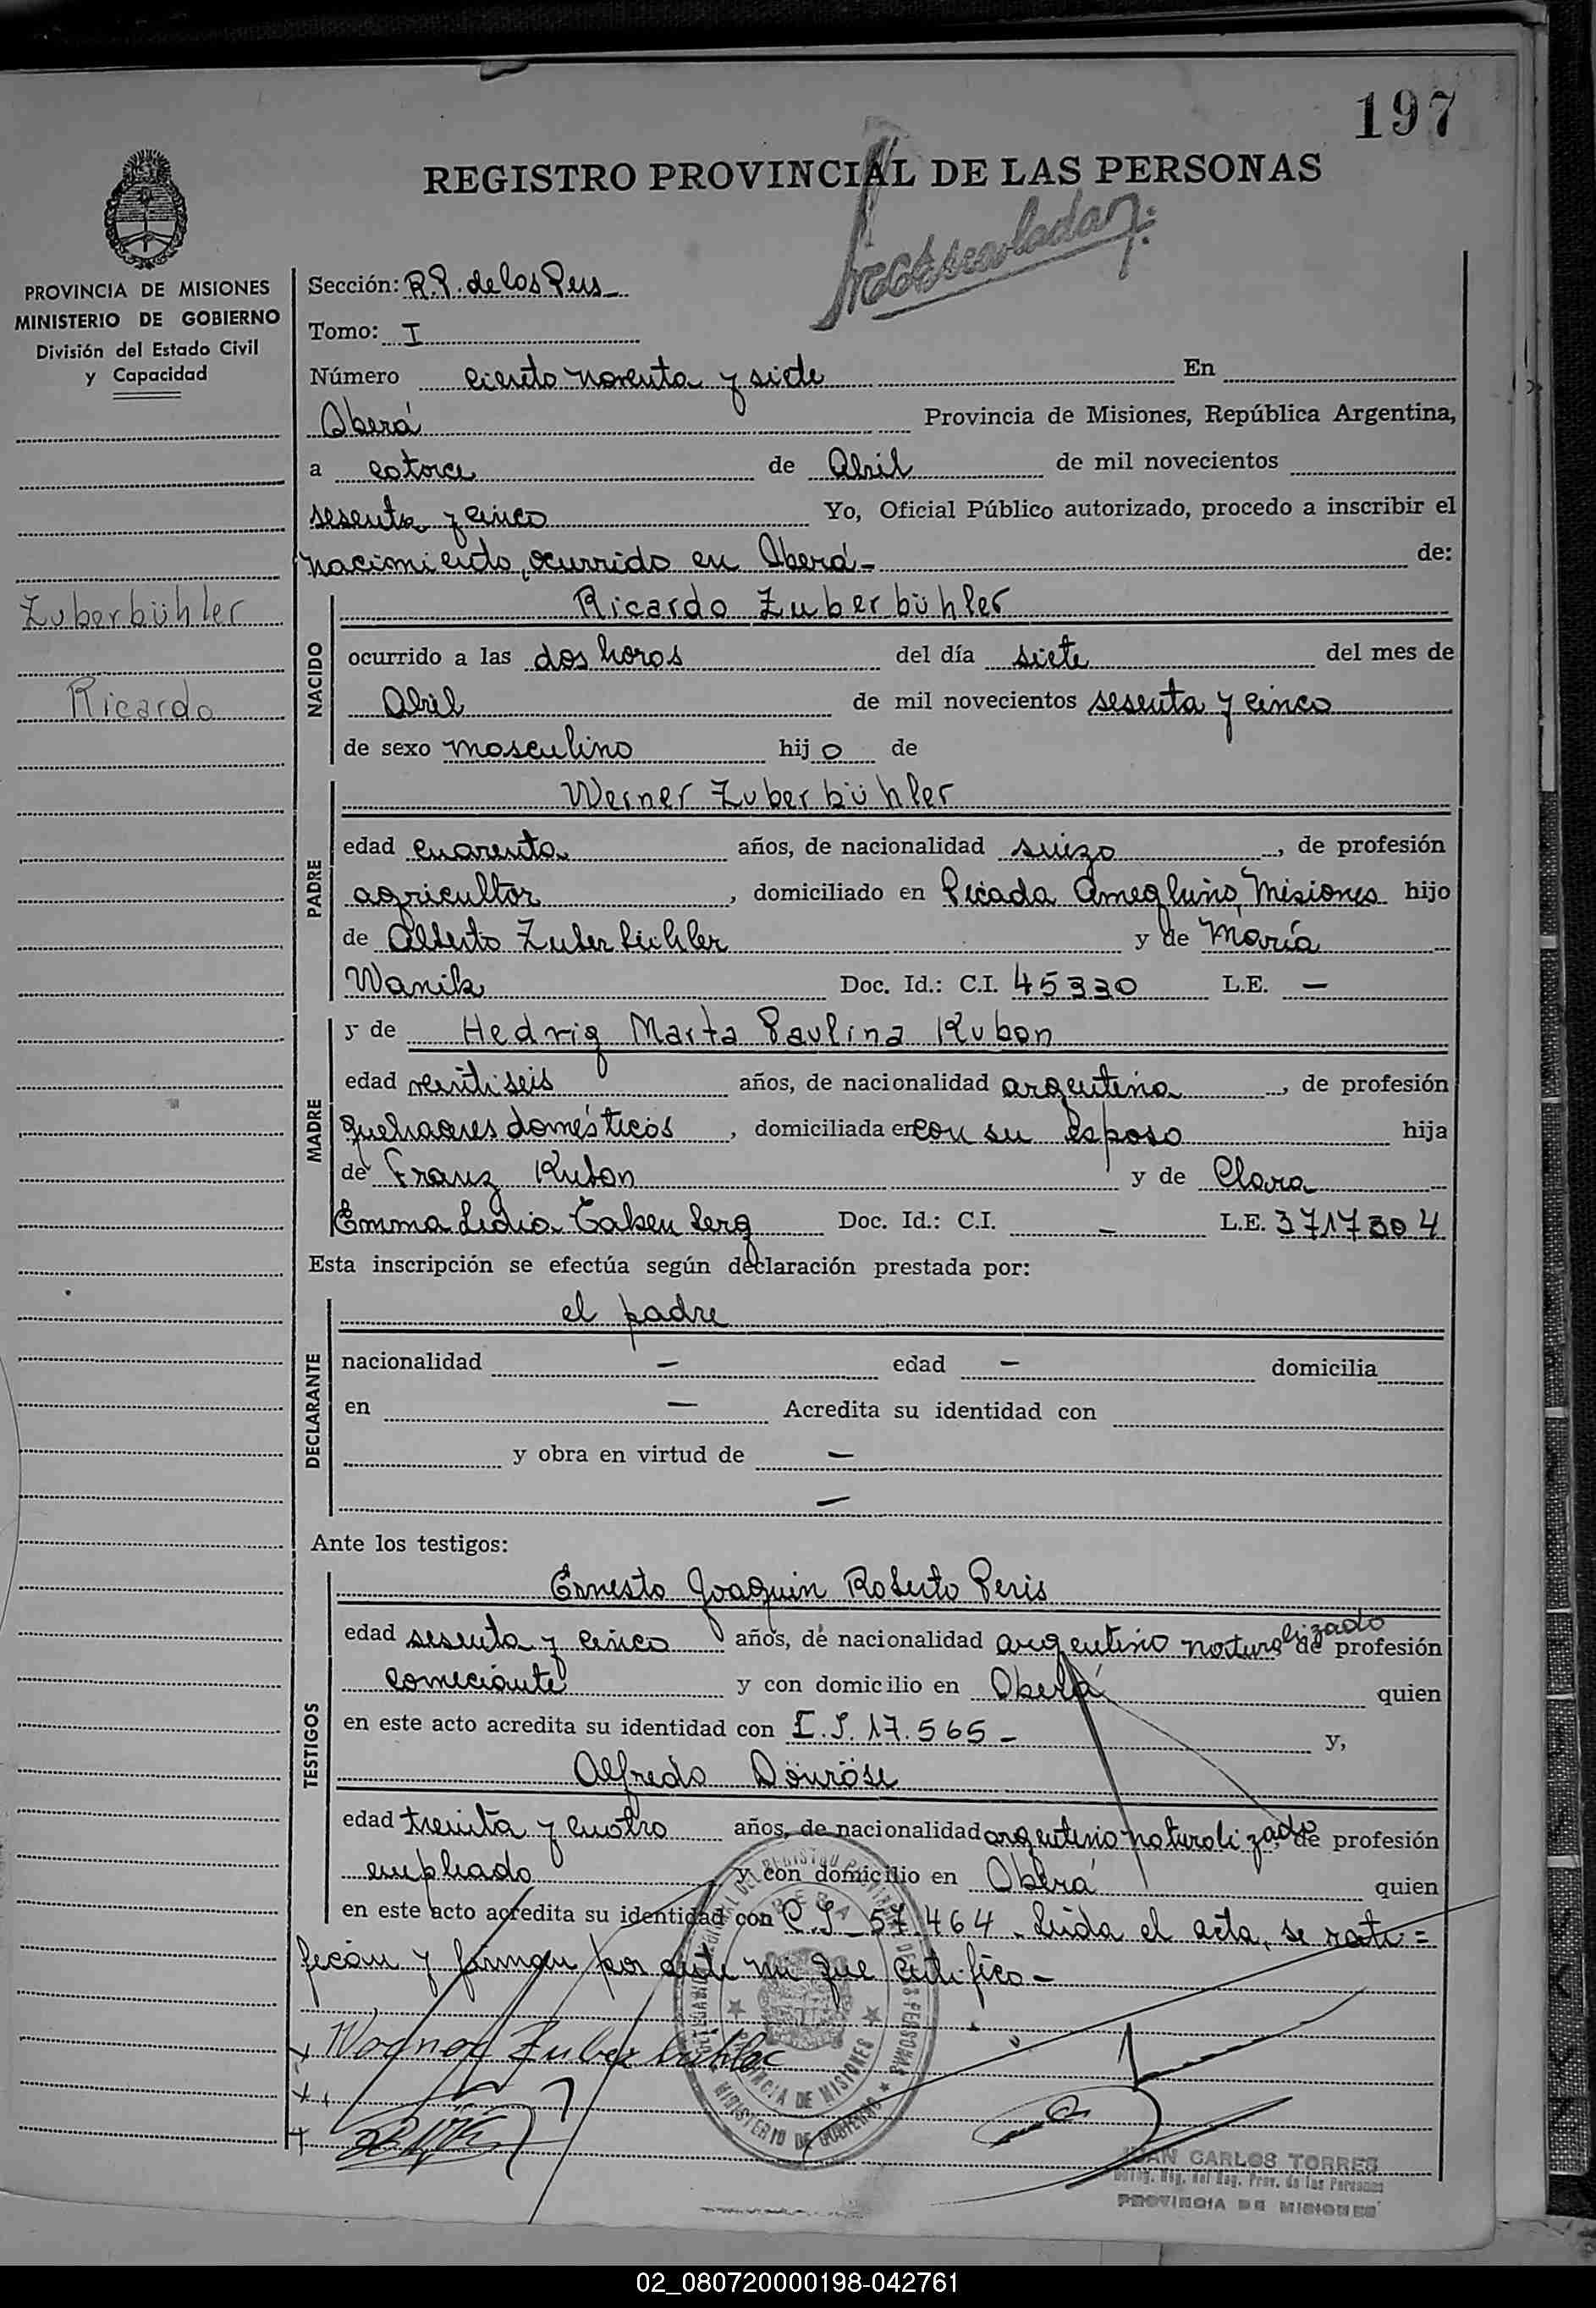 197
REGISTRO PROVINCIAL DE LAS PERSONAS
PROVINCIA DE MISIONES
MINISTERIO DE GOBIERNO
División del Estado Civil
y Capacidad
Zuberbühler
Ricardo
Sección: R.P. de los Pers
Tomo: I
Número ciento noventa y siete En
Oberá Provincia de Misiones, República Argentina,
a catorce de Abril de mil novecientos
sesenta y cinco Yo, Oficial Público autorizado, procedo a inscribir el
nacimiento, ocurrido en Oberá- de:
NACIDO
Ricardo Zuberbühler
ocurrido a las dos horas del día siete del mes de
Abril de mil novecientos sesenta y cinco
de sexo masculino hijo de
PADRE
Werner Zuberbühler
edad cuarenta años, de nacionalidad suizo, de profesión
agricultor, domiciliado en Picada Ameghino, Misiones hijo
de Alberto Zuberbühler y de María
Wanik Doc. Id.: C.I. 45330 L.E. —
MADRE
y de Hedrig Marta Paulina Kubon
edad veintiseis años, de nacionalidad argentina, de profesión
quehaceres domésticos, domiciliada en con su esposo hija
de Franz Kubon y de Clara
Emma Lidia Doc. Id.: C.I. — L.E. 3717304
Esta inscripción se efectúa según declaración prestada por:
DECLARANTE
el padre
nacionalidad — edad — domicilia
en — Acredita su identidad con
y obra en virtud de —
—
Ante los testigos:
TESTIGOS
Ernesto Joaquin Roberto Peris
edad sesenta y cinco años, de nacionalidad argentino naturalizado de profesión
comerciante y con domicilio en Oberá quien
en este acto acredita su identidad con C.I. 17.565 - y,
Alfredo Dönröse
edad treinta y cuatro años, de nacionalidad argentino naturalizado de profesión
empleado y con domicilio en Oberá quien
en este acto acredita su identidad con C.I. 57.464. Leida el acta, se rati=
fican y firman por ante mi que certifico-
Werner Zuberbühler
PROVINCIA DE MISIONES
MINISTERIO DE GOBIERNO
JUAN CARLOS TORRES
Reg. Prov. de las Personas
PROVINCIA DE MISIONES
02_080720000198-042761